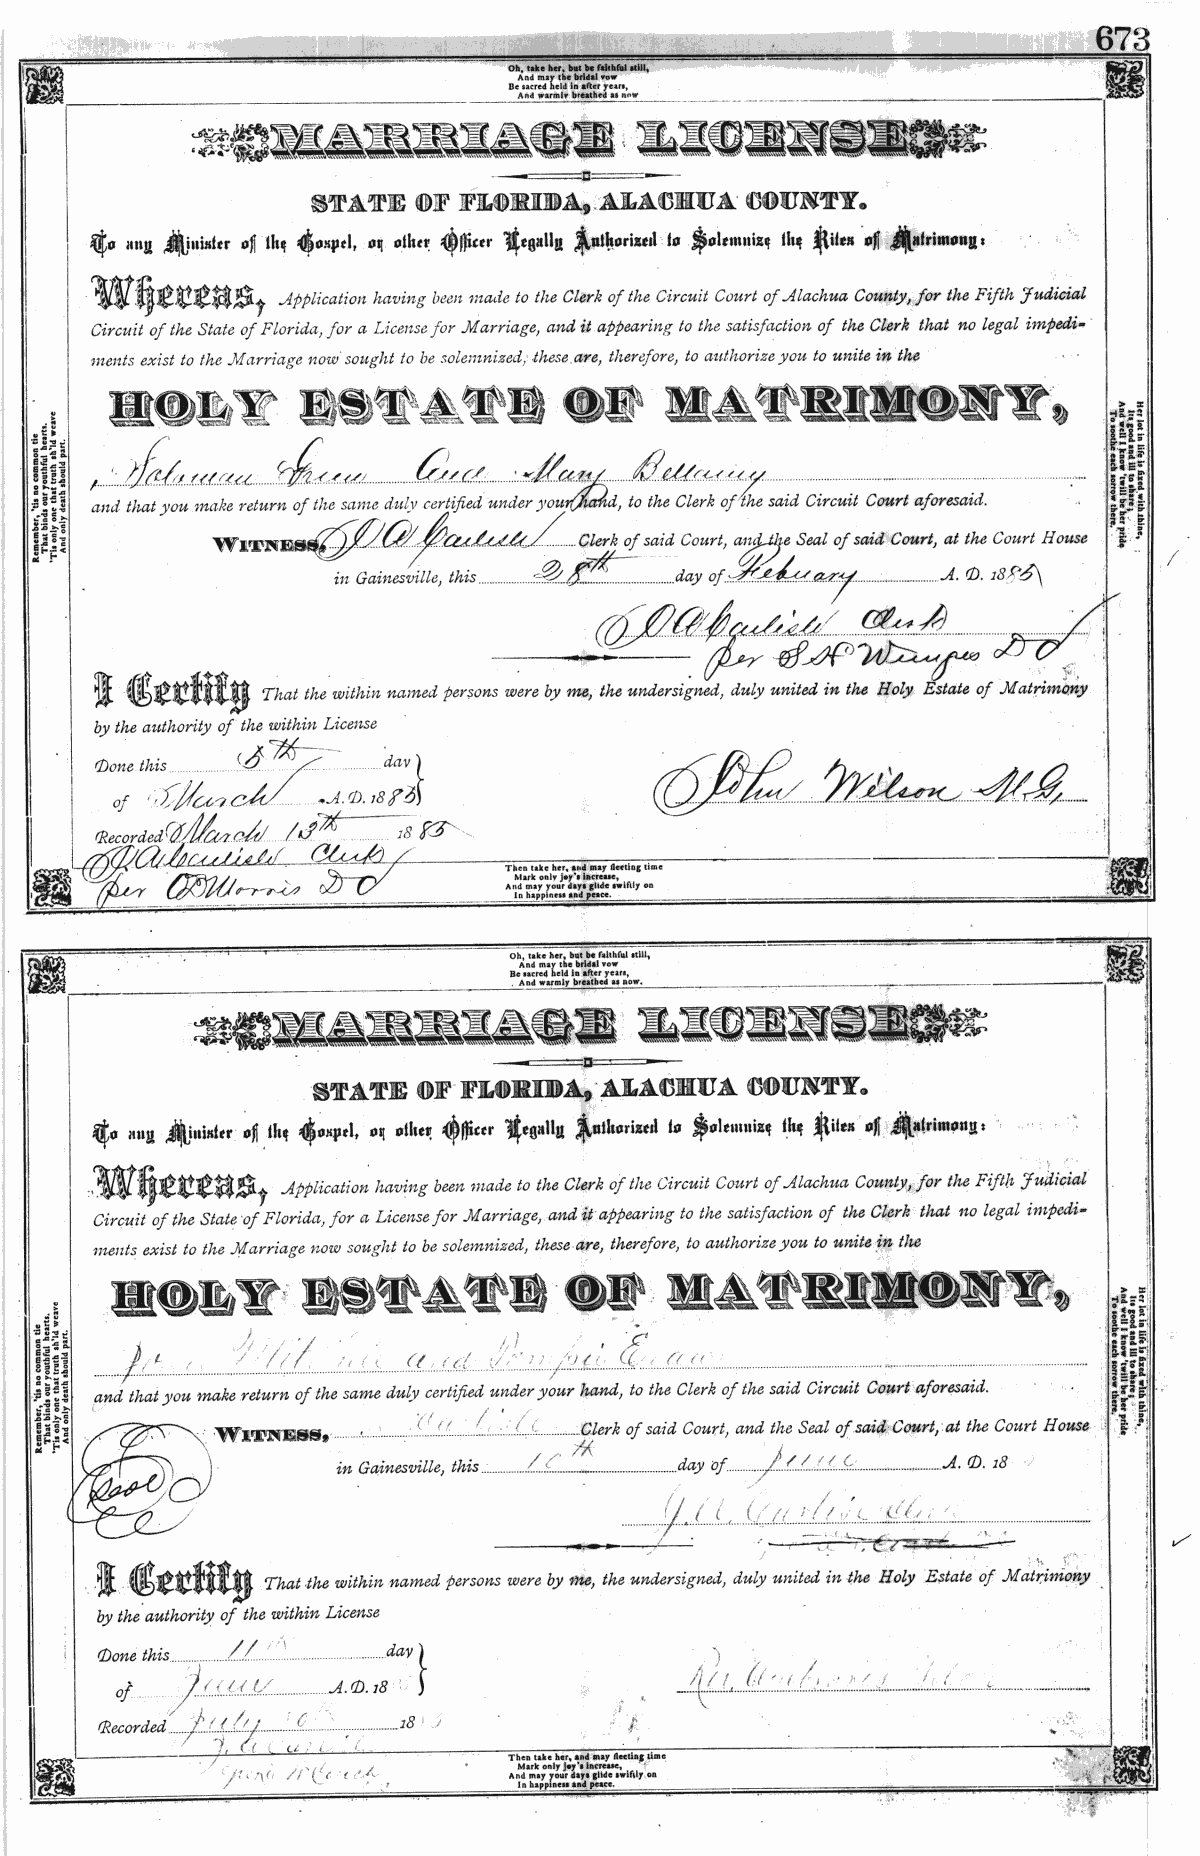 673
Oh, take her, but be faithful still,
And may the bridal vow
Be sacred held in after years,
And warmly breathed as now
MARRIAGE LICENSE
STATE OF FLORIDA, ALACHUA COUNTY.
To any Minister of the Gospel, or other Officer Legally Authorized to Solemnize the Rites of Matrimony:
Whereas, Application having been made to the Clerk of the Circuit Court of Alachua County, for the Fifth Judicial
Circuit of the State of Florida, for a License for Marriage, and it appearing to the satisfaction of the Clerk that no legal impedi-
ments exist to the Marriage now sought to be solemnized, these are, therefore, to authorize you to unite in the
HOLY ESTATE OF MATRIMONY,
Soloman Green And Mary Bellamy
and that you make return of the same duly certified under your hand, to the Clerk of the said Circuit Court aforesaid.
WITNESS, J A Carlisle Clerk of said Court, and the Seal of said Court, at the Court House
in Gainesville, this 28th day of Febuary A. D. 1885
J A Carlisle Clerk
per S H Wienges D C
I Certify That the within named persons were by me, the undersigned, duly united in the Holy Estate of Matrimony
by the authority of the within License
Done this 5th day
of March A. D. 1885
John Wilson M.G.
Recorded March 13th 1885
J A Carlisle Clerk
per O D Morris D C
Remember, 'tis no common tie
That binds our youthful hearts,
'Tis only one that truth sh'ld weave
And only death should part.
Her lot in life is fixed with thine,
Its good and ill to share;
And well I know 'twill be her pride
To soothe each sorrow there.
Then take her, and may fleeting time
Mark only joy's increase,
And may your days glide swiftly on
In happiness and peace.
Oh, take her, but be faithful still,
And may the bridal vow
Be sacred held in after years,
And warmly breathed as now.
MARRIAGE LICENSE
STATE OF FLORIDA, ALACHUA COUNTY.
To any Minister of the Gospel, or other Officer Legally Authorized to Solemnize the Rites of Matrimony:
Whereas, Application having been made to the Clerk of the Circuit Court of Alachua County, for the Fifth Judicial
Circuit of the State of Florida, for a License for Marriage, and it appearing to the satisfaction of the Clerk that no legal impedi-
ments exist to the Marriage now sought to be solemnized, these are, therefore, to authorize you to unite in the
HOLY ESTATE OF MATRIMONY,
and
and that you make return of the same duly certified under your hand, to the Clerk of the said Circuit Court aforesaid.
WITNESS, Carlisle Clerk of said Court, and the Seal of said Court, at the Court House
in Gainesville, this 10th day of June A. D. 18
Seal
J. A. Carlisle Clerk
I Certify That the within named persons were by me, the undersigned, duly united in the Holy Estate of Matrimony
by the authority of the within License
Done this 11th day
of June A. D. 18
Rev.
Recorded July 18
J. A. Carlisle
Remember, 'tis no common tie
That binds our youthful hearts.
'Tis only one that truth sh'ld weave
And only death should part.
Her lot in life is fixed with thine,
Its good and ill to share;
And well I know 'twill be her pride
To soothe each sorrow there.
Then take her, and may fleeting time
Mark only joy's increase,
And may your days glide swiftly on
In happiness and peace.